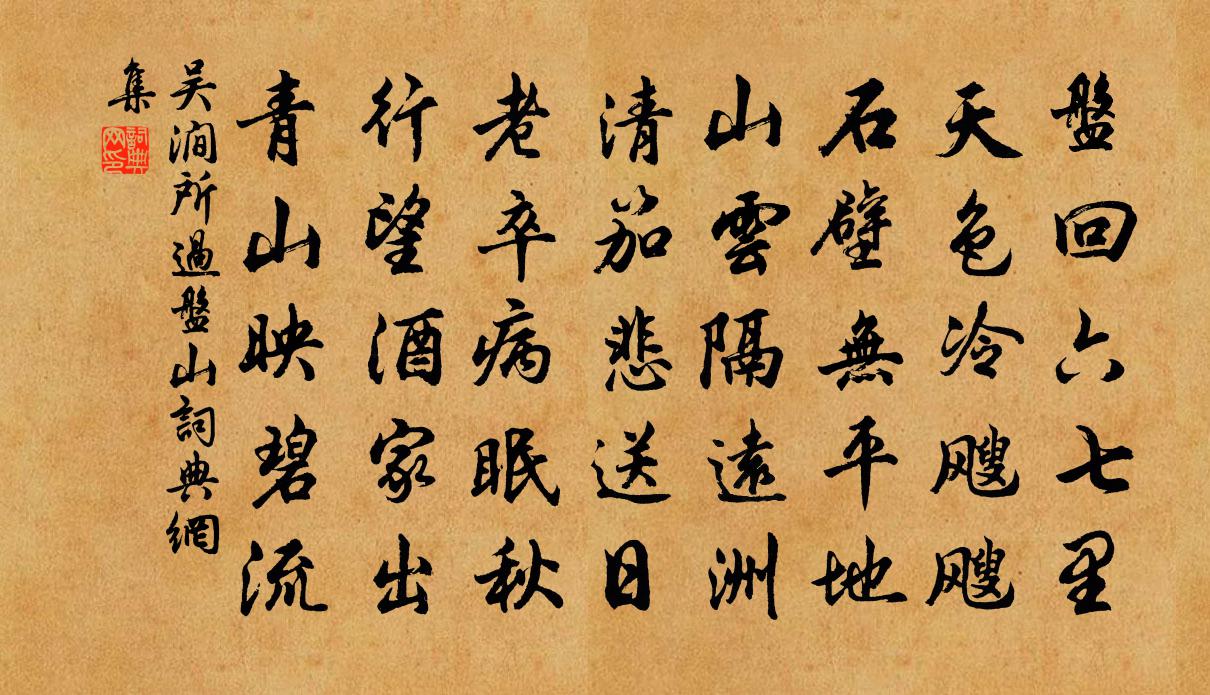 盤回六七里
天色冷颼颼
石壁無平地
山雲隔遠洲
清笳悲送日
老卒病眠秋
行望酒家出
青山映碧流
吴澗所過盤山詞典網
集
詞典
网印